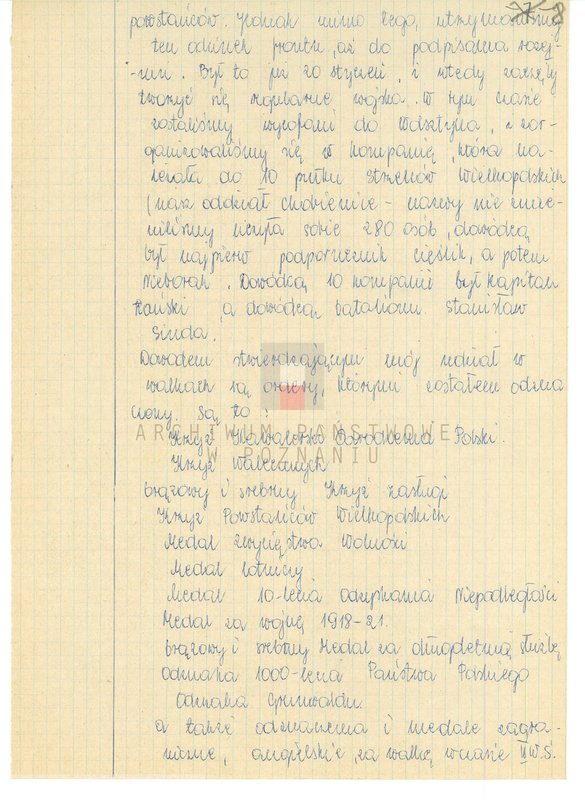 8
powstańców. Jednak mimo tego, utrzymaliśmy
ten odcinek frontu, aż do podpisania rozej-
-mu. Był to już 20 styczeń, i wtedy zaczęły
tworzyć się regularne wojska. W tym czasie
zostaliśmy wycofani do Wolsztyna, i zor-
ganizowaliśmy się w kompanię, która na-
leżała do 10 pułku strzelców Wielkopolskich
(nasz oddział chobienice - nazwy nie zmie-
niliśmy liczyła sobie 280 osób, dowódcą
był najpierw podporucznik Cieślik, a potem
Nieborak. Dowódcą 10 kompanii był kapitan
, a dowódcą batalionu Stanisław
Sinda.
Dowodem stwierdzającym mój udział w
walkach są ordery, którymi zostałem odzna
czony. Są to:
ARCHIWUM PAŃSTWOWE
W POZNANIU
Krzyż Kawalerski Odrodzenia Polski.
Krzyż Walecznych
brązowy i srebrny Krzyż Zasługi
Krzyż Powstańców Wielkopolskich
Medal Zwycięstwa Wolności
Medal Lotniczy
Medal 10-lecia Odzyskania Niepodległości
Medal za wojnę 1918-21.
brązowy i srebrny Medal za długoletnią służbę
Odznaka 1000-lecia Państwa Polskiego
Odznaka Grunwaldu
a także odznaczenia i medale zagra-
niczne, angielskie, za walkę w czasie II W.Ś.